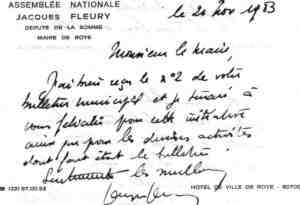 ASSEMBLÉE NATIONALE
JACQUES FLEURY
DÉPUTÉ DE LA SOMME
MAIRE DE ROYE
le 20 Nov 1983
Monsieur le Maire,
J'ai bien reçu le n°2 de votre
bulletin municipal et je tenais à
vous féliciter pour cette initiative
ainsi que pour les diverses activités
dont fait état le bulletin.
les meilleurs
HOTEL DE VILLE DE ROYE - 80700